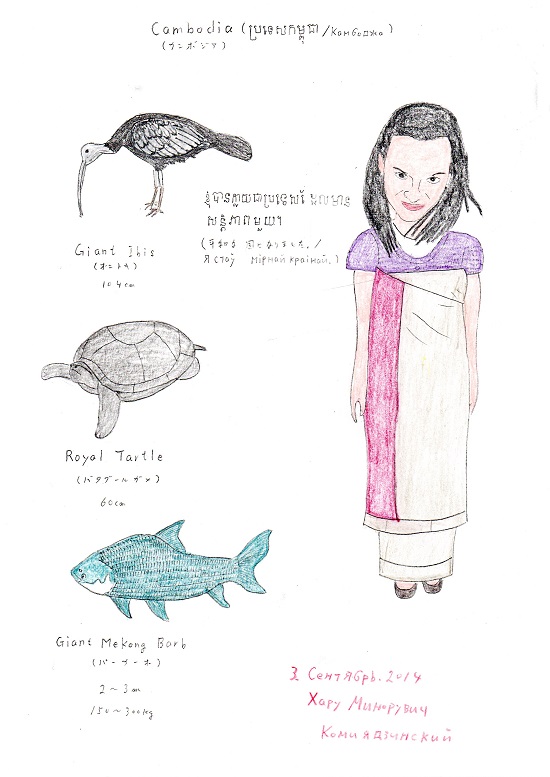 Cambodia (ប្រទេសកម្ពុជា/Камбоджа)
(カンボジア)
ខ្ញុំបានក្លាយជាប្រទេស ដែលមាន
សន្តិភាពមួយ។
(平和な 国になりました./
Я стаў мірнай краінай.)
Giant Ibis
(オニトキ)
104cm
Royal Tartle
(バタグールガメ)
60cm
Giant Mekong Barb
2〜3m
150〜300kg
3 Сентябрь.2014
Хару Минорувич
Комиядзинский